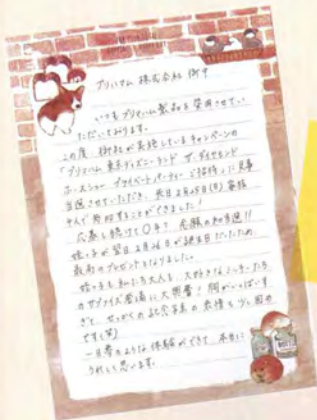 プリマハム 株式会社 御中
いつもプリマハム製品を愛用させてい
ただいております。
この度、御社が長続しているキャンペーンの
「プリマハム 東京ディズニーランド ザ・ダイヤモンド
ホースシュー プライベートパーティー」ご招待に見事
当選させていただき、来日2月25日(日) 家族
4人で参加することができました!
応募し続けて〇年? 念願の初当選!!
娘っ子が翌日2月26日が誕生日だったため、
最高のプレゼントとなりました。
娘っ子も私たち大人も、大好きなミッキーたち
のサプライズ登場に大興奮! 胸がいっぱいす
ぎて、せっかくの記念写真の表情も少し固め
です(笑)
一日夢のような体験ができて、本当に
うれしく思います。